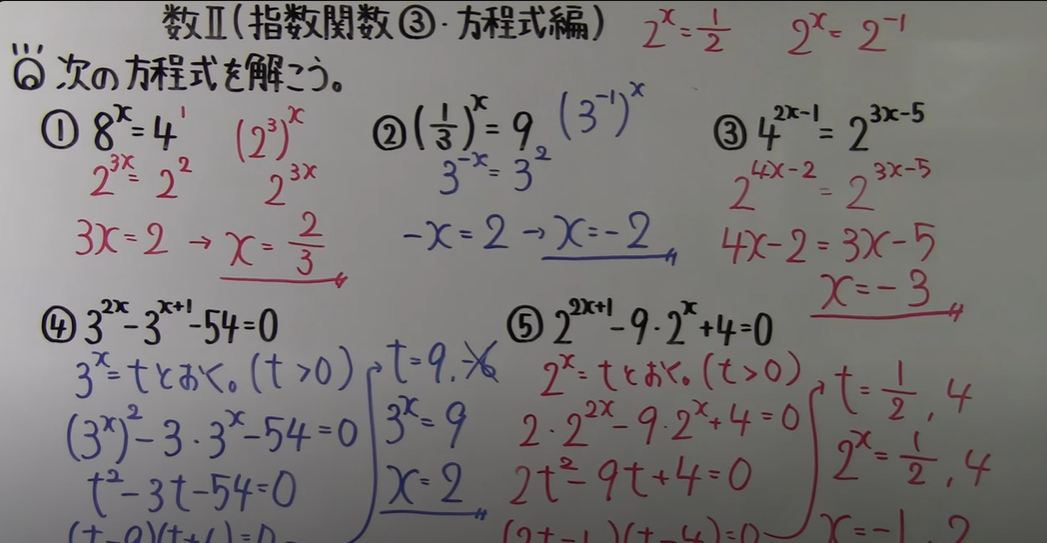 数Ⅱ(指数関数③・方程式編)
2^x = 1/2  2^x = 2^-1
次の方程式を解こう。
① 8^x = 4^1  (2^3)^x
2^3x = 2^2  2^3x
3x = 2 → x = 2/3
② (1/3)^x = 9  (3^-1)^x
3^-x = 3^2
-x = 2 → x = -2
③ 4^2x-1 = 2^3x-5
2^4x-2 = 2^3x-5
4x-2 = 3x-5
x = -3
④ 3^2x - 3^x+1 - 54 = 0
3^x = tとおく。(t > 0)
(3^x)^2 - 3・3^x - 54 = 0
t^2 - 3t - 54 = 0
(t-9)(t+6)=0
t = 9, -6
3^x = 9
x = 2
⑤ 2^2x+1 - 9・2^x + 4 = 0
2^x = tとおく。(t > 0)
2・2^2x - 9・2^x + 4 = 0
2t^2 - 9t + 4 = 0
(2t-1)(t-4)=0
t = 1/2, 4
2^x = 1/2, 4
x = -1, 2